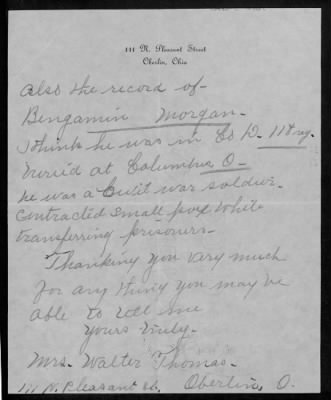 111 N. Pleasant Street
Oberlin, Ohio
also the record of-
Bengamin Morgan-
I think he was in Co D. 11 reg.
buried at Columbus O-
he was a Civil war soldier-
contracted small pox while
transferring prisoners-
Thanking you vary much
for any thing you may be
able to tell me
Yours truly-
Mrs. Walter Thomas-
111 N. Pleasant st. Oberlin, O.